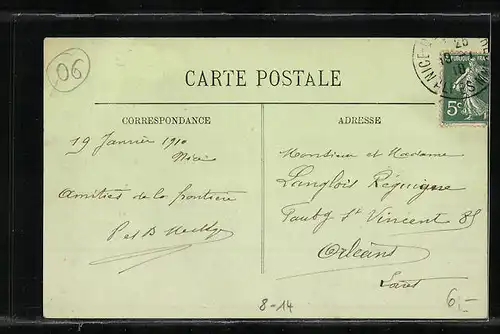 06
CARTE POSTALE
CORRESPONDANCE
19 Janvier 1910
Nice
Amitiés de la frontière
P et B
ADRESSE
Monsieur et Madame
Langlois
Faubg St Vincent 85
Orléans
5c
8-14
6,-